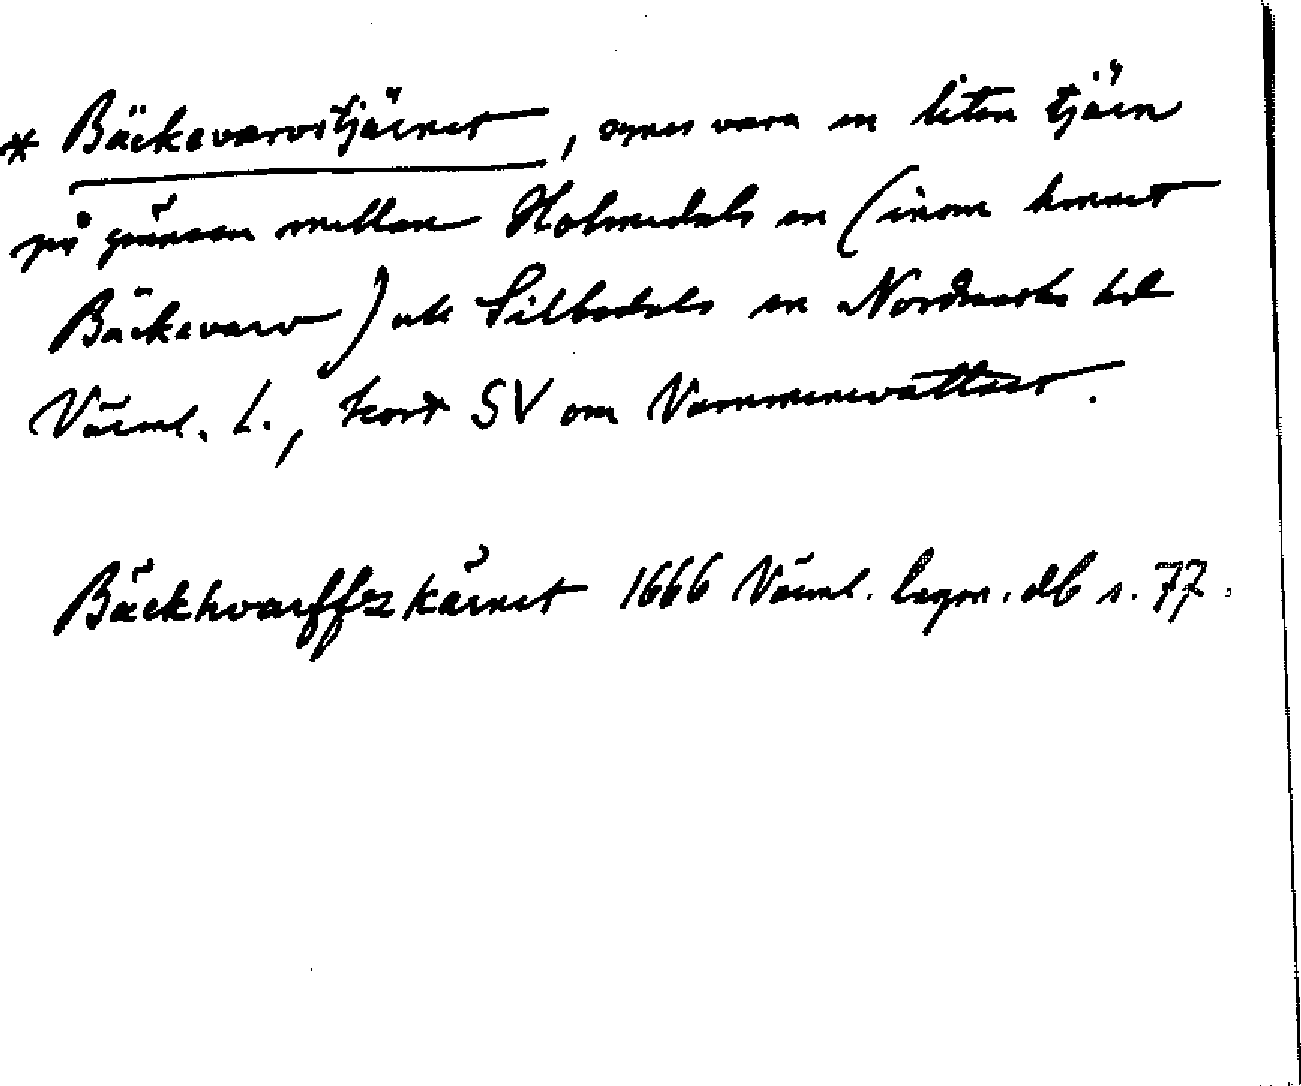 * Bäckevarvstjärnet, synes vara en liten tjärn
på gränsen mellan Holmedals sn (inom hemmet
Bäckevarv) och Silbodals sn Nordmarks hd
Värml. l., kort SV om Vammervattnet.
Bäckhvarffzkärnet 1666 Värml. lagm. db s. 77.